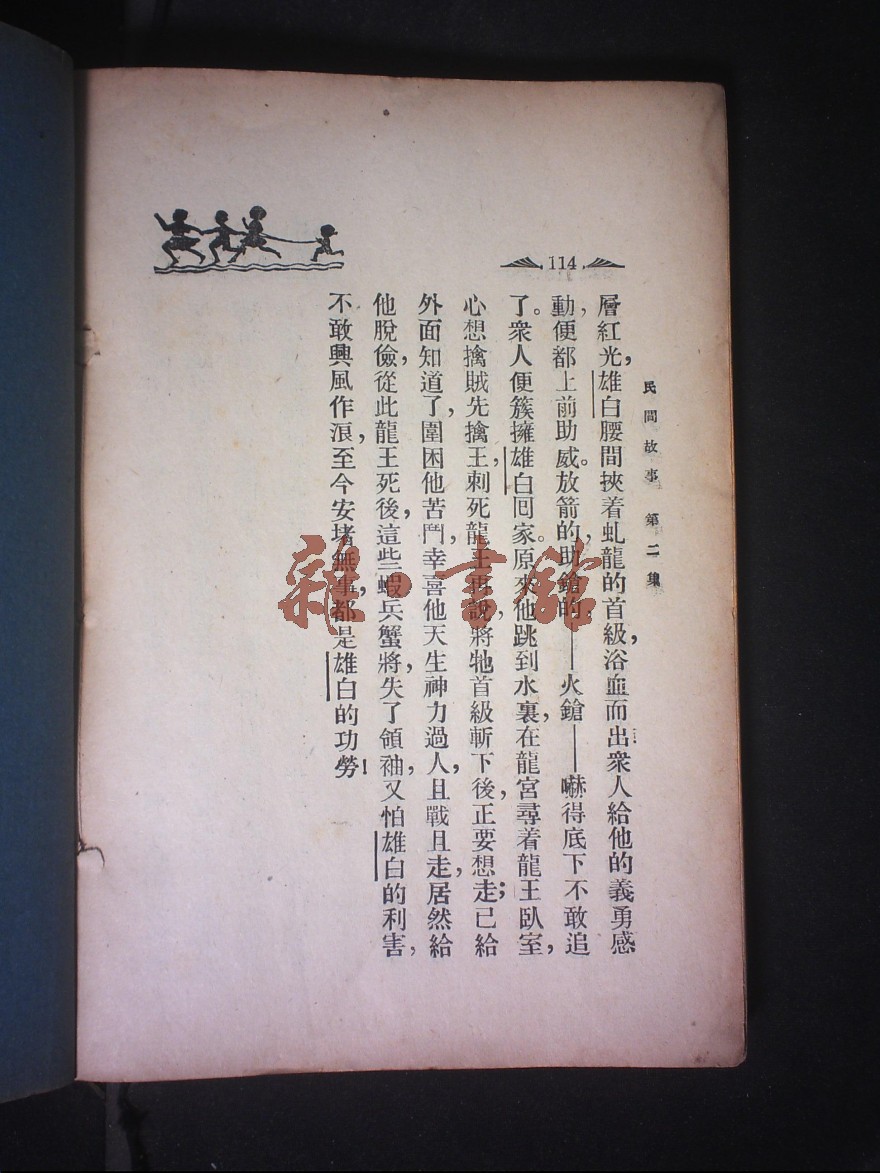 114
民間故事 第二集
層紅光，雄白腰間挾着虬龍的首級，浴血而出衆人給他的義勇感
動，便都上前助威。放箭的，助鎗的，——火鎗——嚇得底下不敢追
了。衆人便簇擁雄白回家。原來他跳到水裏，在龍宮尋着龍王臥室，
心想擒賊先擒王，刺死龍王再說，將牠首級斬下後，正要想走；已給
外面知道了，圍困他苦鬥，幸喜他天生神力過人，且戰且走，居然給
他脫儉，從此龍王死後，這些蝦兵蟹將，失了領袖，又怕雄白的利害，
不敢興風作浪，至今安堵無事，都是雄白的功勞！
雜·書館